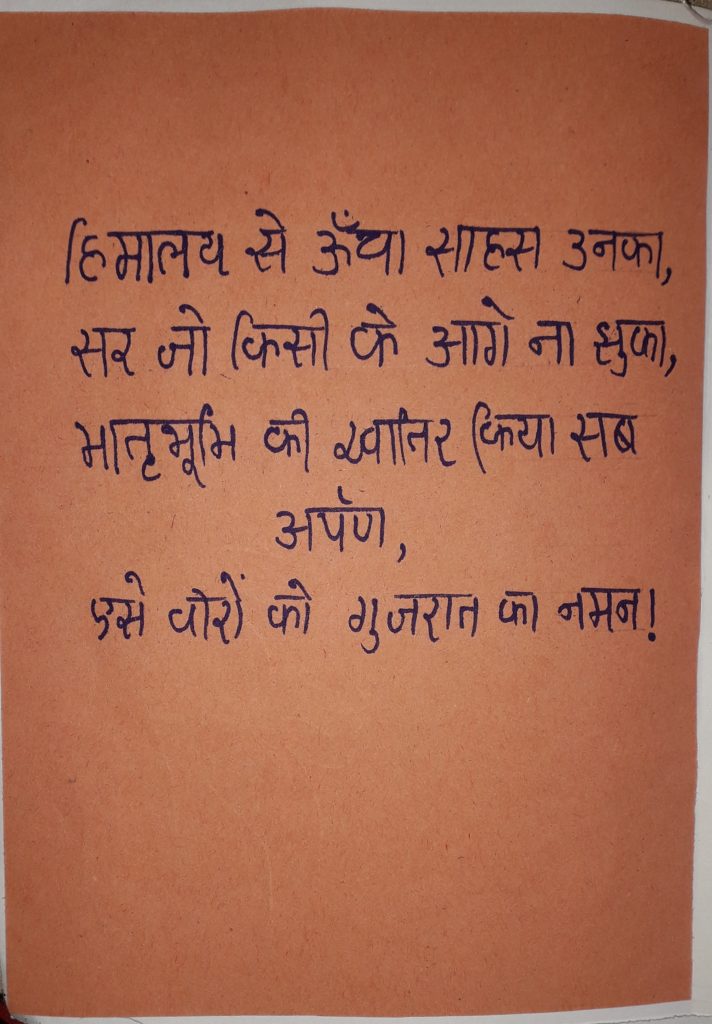 हिमालय से ऊँचा साहस उनका,
सर जो किसी के आगे ना झुका,
मातृभूमि की खातिर किया सब
अर्पण,
एसे वीरों को गुजरात का नमन!